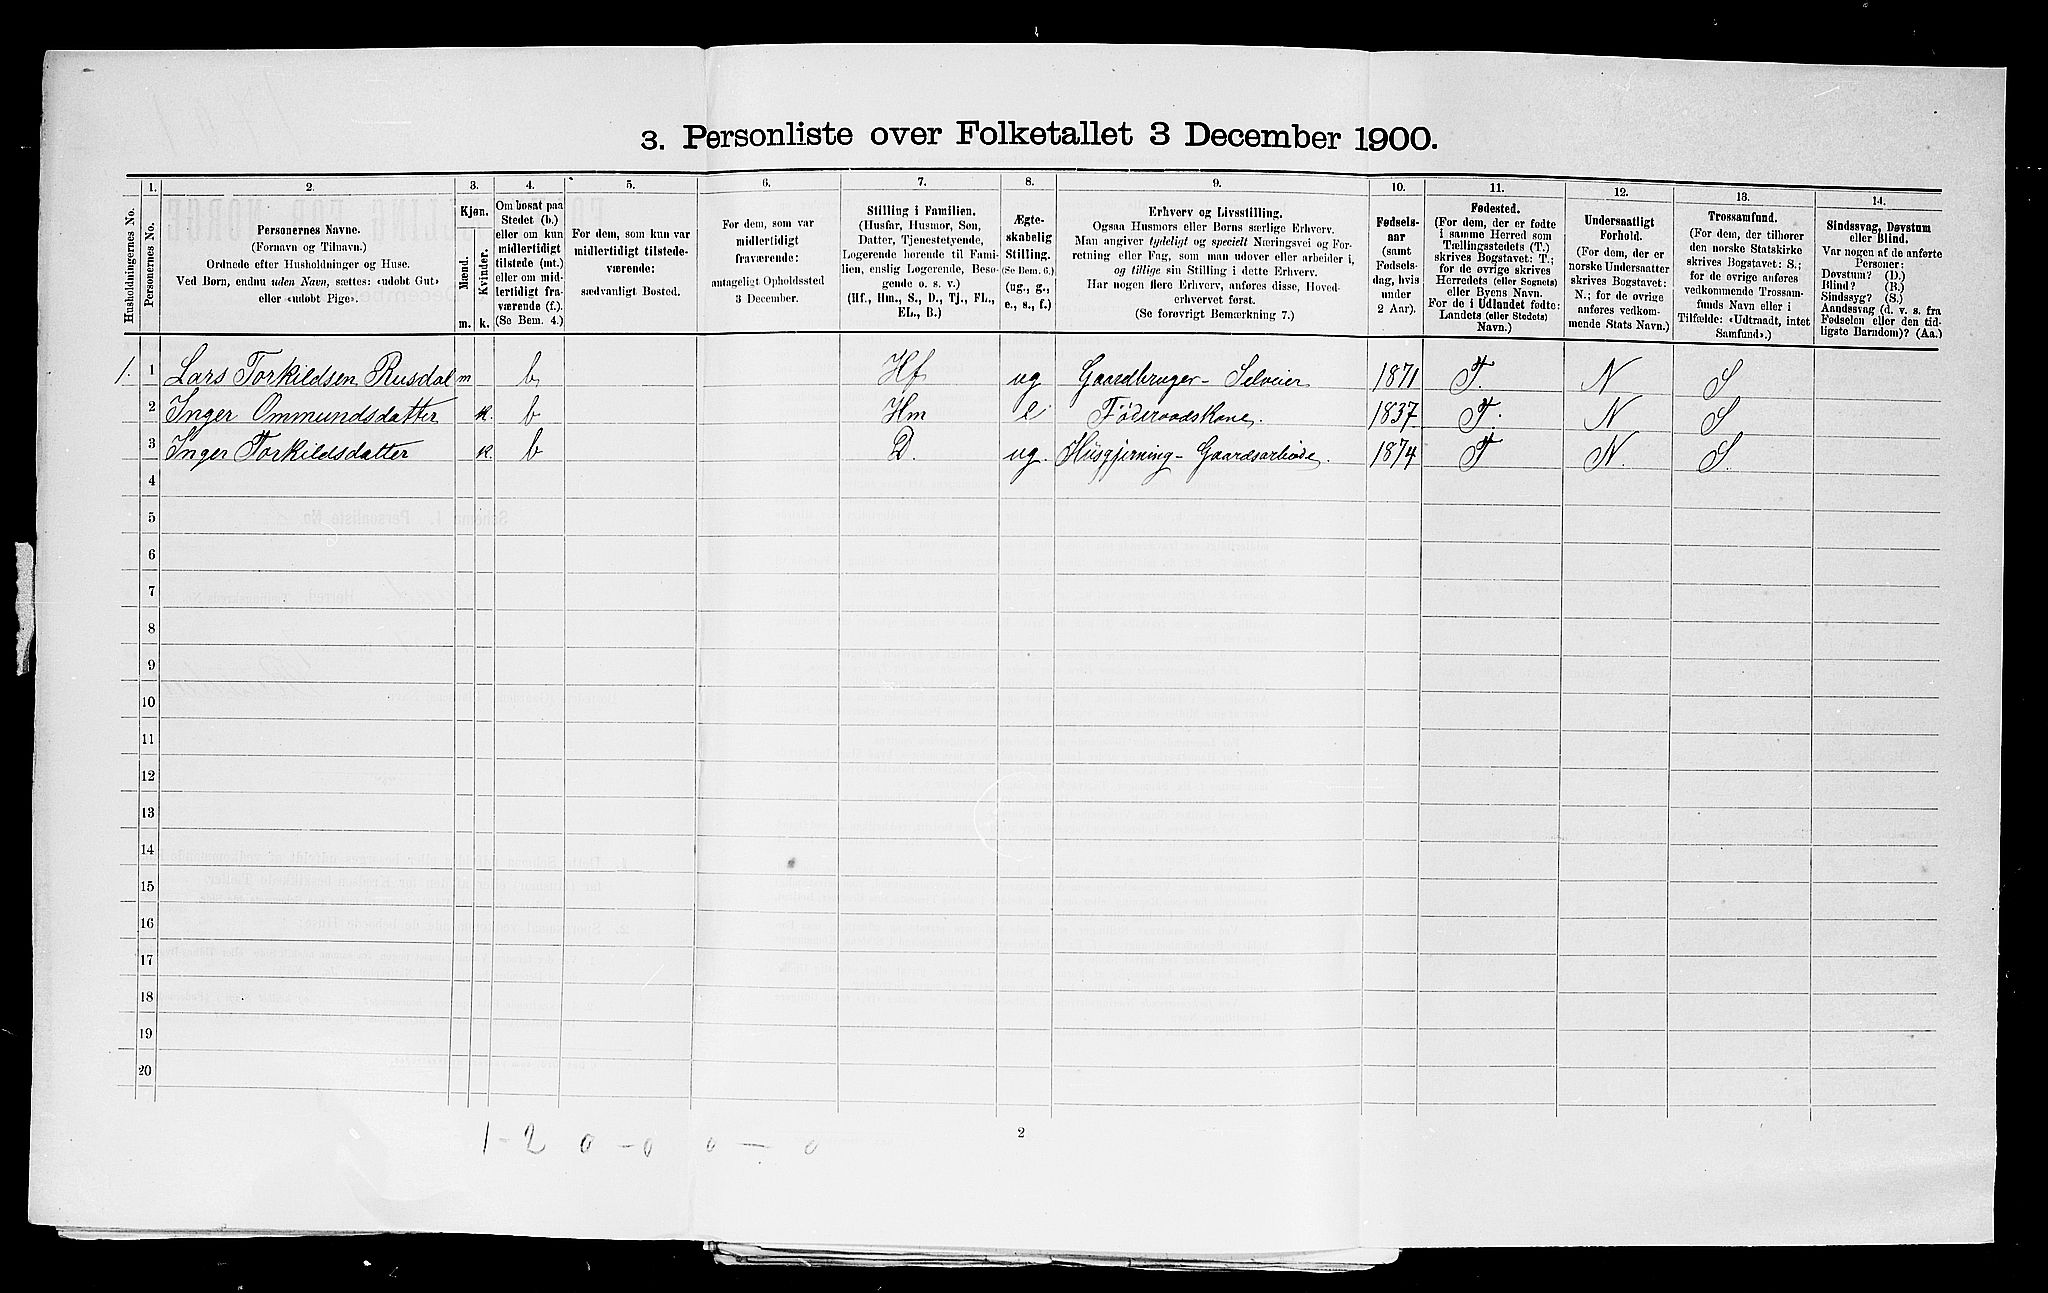 3. Personliste over Folketallet 3 December 1900.
Husholdningernes No.
1.
Personernes No.
2.
Personernes Navne.
(Fornavn og Tilnavn.)
Ordnede efter Husholdninger og Huse.
Ved Børn, endnu uden Navn, sættes: «udøbt Gut»
eller «udøbt Pige».
3.
Kjøn.
Mænd.
Kvinder.
m.
k.
4.
Om bosat paa
Stedet (b.)
eller om kun
midlertidigt
tilstede (mt.)
eller om mid-
lertidigt fra-
værende (f.).
(Se Bem. 4.)
5.
For dem, som kun var
midlertidigt tilstede-
værende:
sædvanligt Bosted.
6.
For dem, som var
midlertidigt
fraværende:
antageligt Opholdssted
3 December.
7.
Stilling i Familien.
(Husfar, Husmor, Søn,
Datter, Tjenestetyende,
Logerende hørende til Fami-
lien, enslig Logerende, Besø-
gende o. s. v.)
(Hf., Hm., S., D., Tj., FL.,
EL., B.)
8.
Ægte-
skabelig
Stilling.
(Se Bem. 6.)
(ug., g.,
e., s., f.)
9.
Erhverv og Livsstilling.
Ogsaa Husmors eller Børns særlige Erhverv.
Man angiver tydeligt og specielt Næringsvei og For-
retning eller Fag, som man udover eller arbeider i,
og tillige sin Stilling i dette Erhverv.
Har nogen flere Erhverv, anføres disse, Hoved-
erhvervet først.
(Se forøvrigt Bemærkning 7.)
10.
Fødsels-
aar
(samt
Fødsels-
dag, hvis
under
2 Aar).
11.
Fødested.
(For dem, der er fødte
i samme Herred som
Tællingsstedets (T.)
skrives Bogstavet: T.;
for de øvrige skrives
Herredets (eller Sognets)
eller Byens Navn.
For de i Udlandet fødte:
Landets (eller Stedets)
Navn.)
12.
Undersaatligt
Forhold.
(For dem, der er
norske Undersaatter
skrives Bogstavet:
N.; for de øvrige
anføres vedkom-
mende Stats Navn.)
13.
Trossamfund.
(For dem, der tilhører
den norske Statskirke
skrives Bogstavet: S.;
for de øvrige anføres
vedkommende Trossam-
funds Navn eller i
Tilfælde: «Udtraadt, intet
Samfund».)
14.
Sindssvag, Døvstum
eller Blind.
Var nogen af de anførte
Personer:
Døvstum? (D.)
Blind? (B.)
Sindssyg? (S.)
Aandssvag (d. v. s. fra
Fødselen eller den tid-
ligste Barndom)? (Aa.)
1. 1 Lars Torkildsen Rusdal m b Hf ug Gaardbruger - Selveier 1871 T. N S
2 Inger Ommundsdatter k. b Hm e Föderaadskone. 1837 T. N S
3 Inger Torkildsdatter k. b D. ug. Husgjerning - Gaardsarbeide. 1874 T N. S.
4
5
6
7
8
9
10
11
12
13
14
15
16
17
18
19
20
1 - 2 0 - 0 0 - 0
2